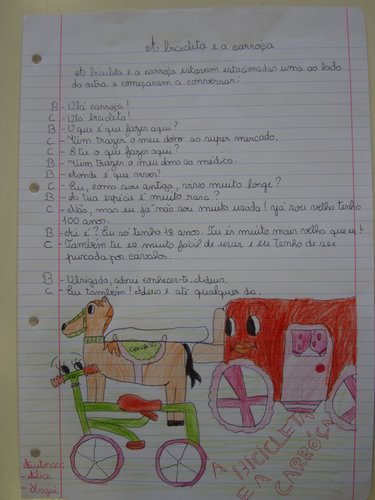 A bicicleta e a carroça
A bicicleta e a carroça estavam estacionadas uma ao lado
da outra e começaram a conversar:
B - Olá carroça!
C - Olá bicicleta!
B - O que é que fazes aqui?
C - Vim trazer o meu dono ao super mercado.
C - E tu o que fazes aqui?
B - Vim trazer o meu dono ao médico.
B - Aonde é que vives?
C - Eu, como sou antiga, vivo muito longe?
B - A tua espécie é muito rara?
C - Não, mas eu já não sou muito usada! já sou velha tenho
100 anos.
B - Ai é? Eu só tenho 18 anos. Tu és muito mais velha que eu!
C - Também tu és muito fácil de usar e eu tenho de ser
puxada por cavalos.
B - Obrigada, adorei conhecer-te. Adeus.
C - Eu também! Adeus e até qualquer dia.
A BICICLETA
E A CARRÓÇA